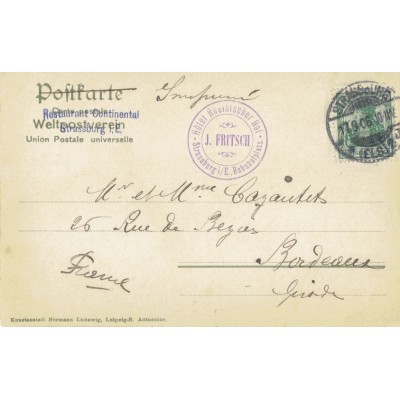 Postkarte
Carte postale
Restaurant Continental
Weltpostverein
Strassburg i. E.
Union Postale universelle
Imprimé
Hôtel Rheinischer Hof
J. FRITSCH
Strassburg i/E., Bahnhofplatz
STRASSBURG
17.9.05
(ELS)
Mr et Mme Cazautets
26 Rue de Bezas
Bordeaux
France
Girode
Kunstanstalt Hermann Ludewig, Leipzig-R. Autocolor.